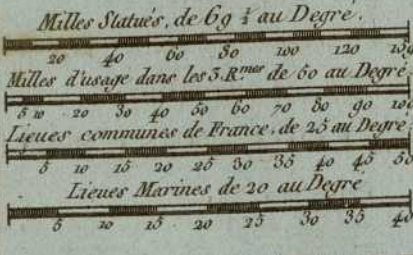 Milles Statués, de 69 ½ au Degré.
20 40 60 80 100 120
Milles d'usage dans les 3. Rmes de 60 au Degré
5 10 20 30 40 50 60 70 80 90 100
Lieues communes de France, de 25 au Degré.
5 10 15 20 25 30 35 40 45 50
Lieues Marines de 20 au Degré
5 10 15 20 25 30 35 40